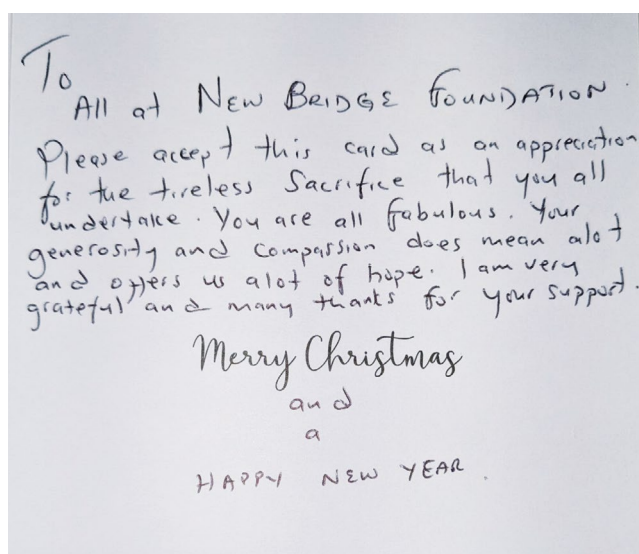 To
All at NEW BRIDGE FOUNDATION.
Please accept this card as an appreciation
for the tireless Sacrifice that you all
undertake. You are all fabulous. Your
generosity and compassion does mean alot
and offers us alot of hope. I am very
grateful and many thanks for your support.
Merry Christmas
and
a
HAPPY NEW YEAR.